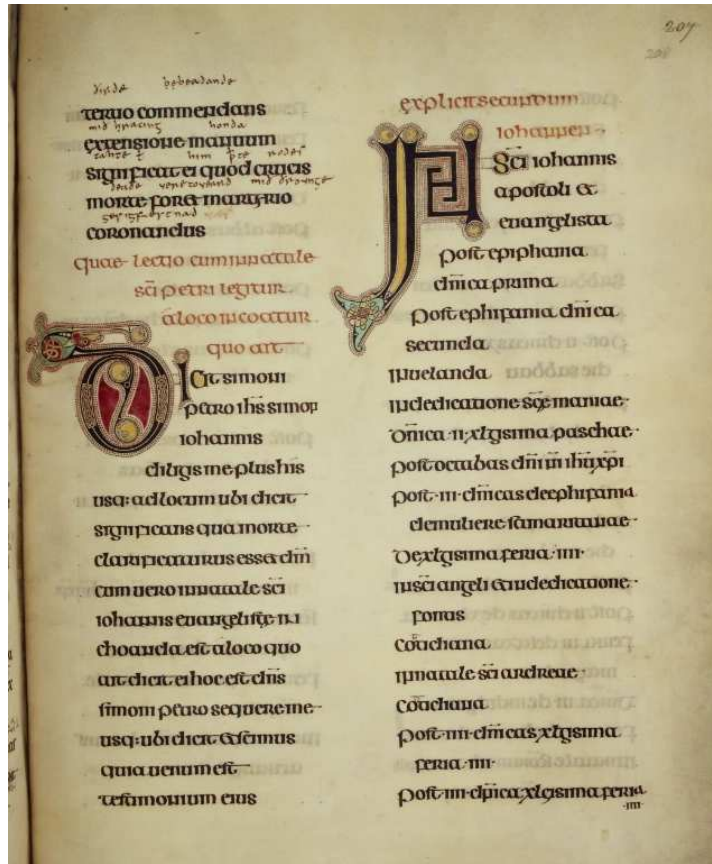 207
208
ðirde bebeadande
tertio commendans
mid hracing honda
extensione manuum
him þte roder
significat ei quod crucis
mid
morte foret martyrio
coronandus
quae lectio cum in natale
sci petri legitur
a loco incoatur
quo ait
Dicit simoni
petro ihs simon
iohannis
diligis me plus his
usq: ad locum ubi dicit
significans qua morte
clarificaturus esset dm
cum uero in natale sci
iohannis euangelistę in
choanda est a loco quo
ait dicit ei hoc est dns
simoni petro sequere me
usq: ubi dicit et scimus
quia uerum est
testimonium eius
explicit secundum
iohannen
IN Sci iohannis
apostoli et
euangelista
post epiphania
dnica prima
post ephifania dnica
secunda
in uelanda
in dedicatione scę mariae·
dnica ·ii· xlgisima paschae·
post octabas dni in ihu xpi
post ·iii· dnicas de epifania
de muliere samaritanae·
de xlgisima feria ·iiii·
in sci angeli et in dedicatione·
fontis
cotidiana
in natale sci andreae·
cotidiana
post ·iiii· dnicas xlgisima
feria ·iiii·
post ·iiii· dnica xlgisima feria
·iiii·